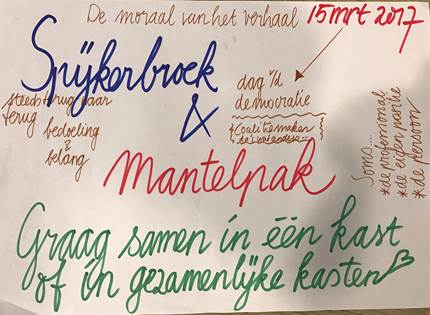 De moraal van het verhaal
15 mrt 2017
Spijkerbroek
&
Mantelpak
steeds terug naar
terug
bedoeling
&
belang
dag v/d
democratie
Coalitiemaken
Soms...
* de professional
* de eigen positie
* de persoon
Graag samen in één kast
of in gezamenlijke kasten